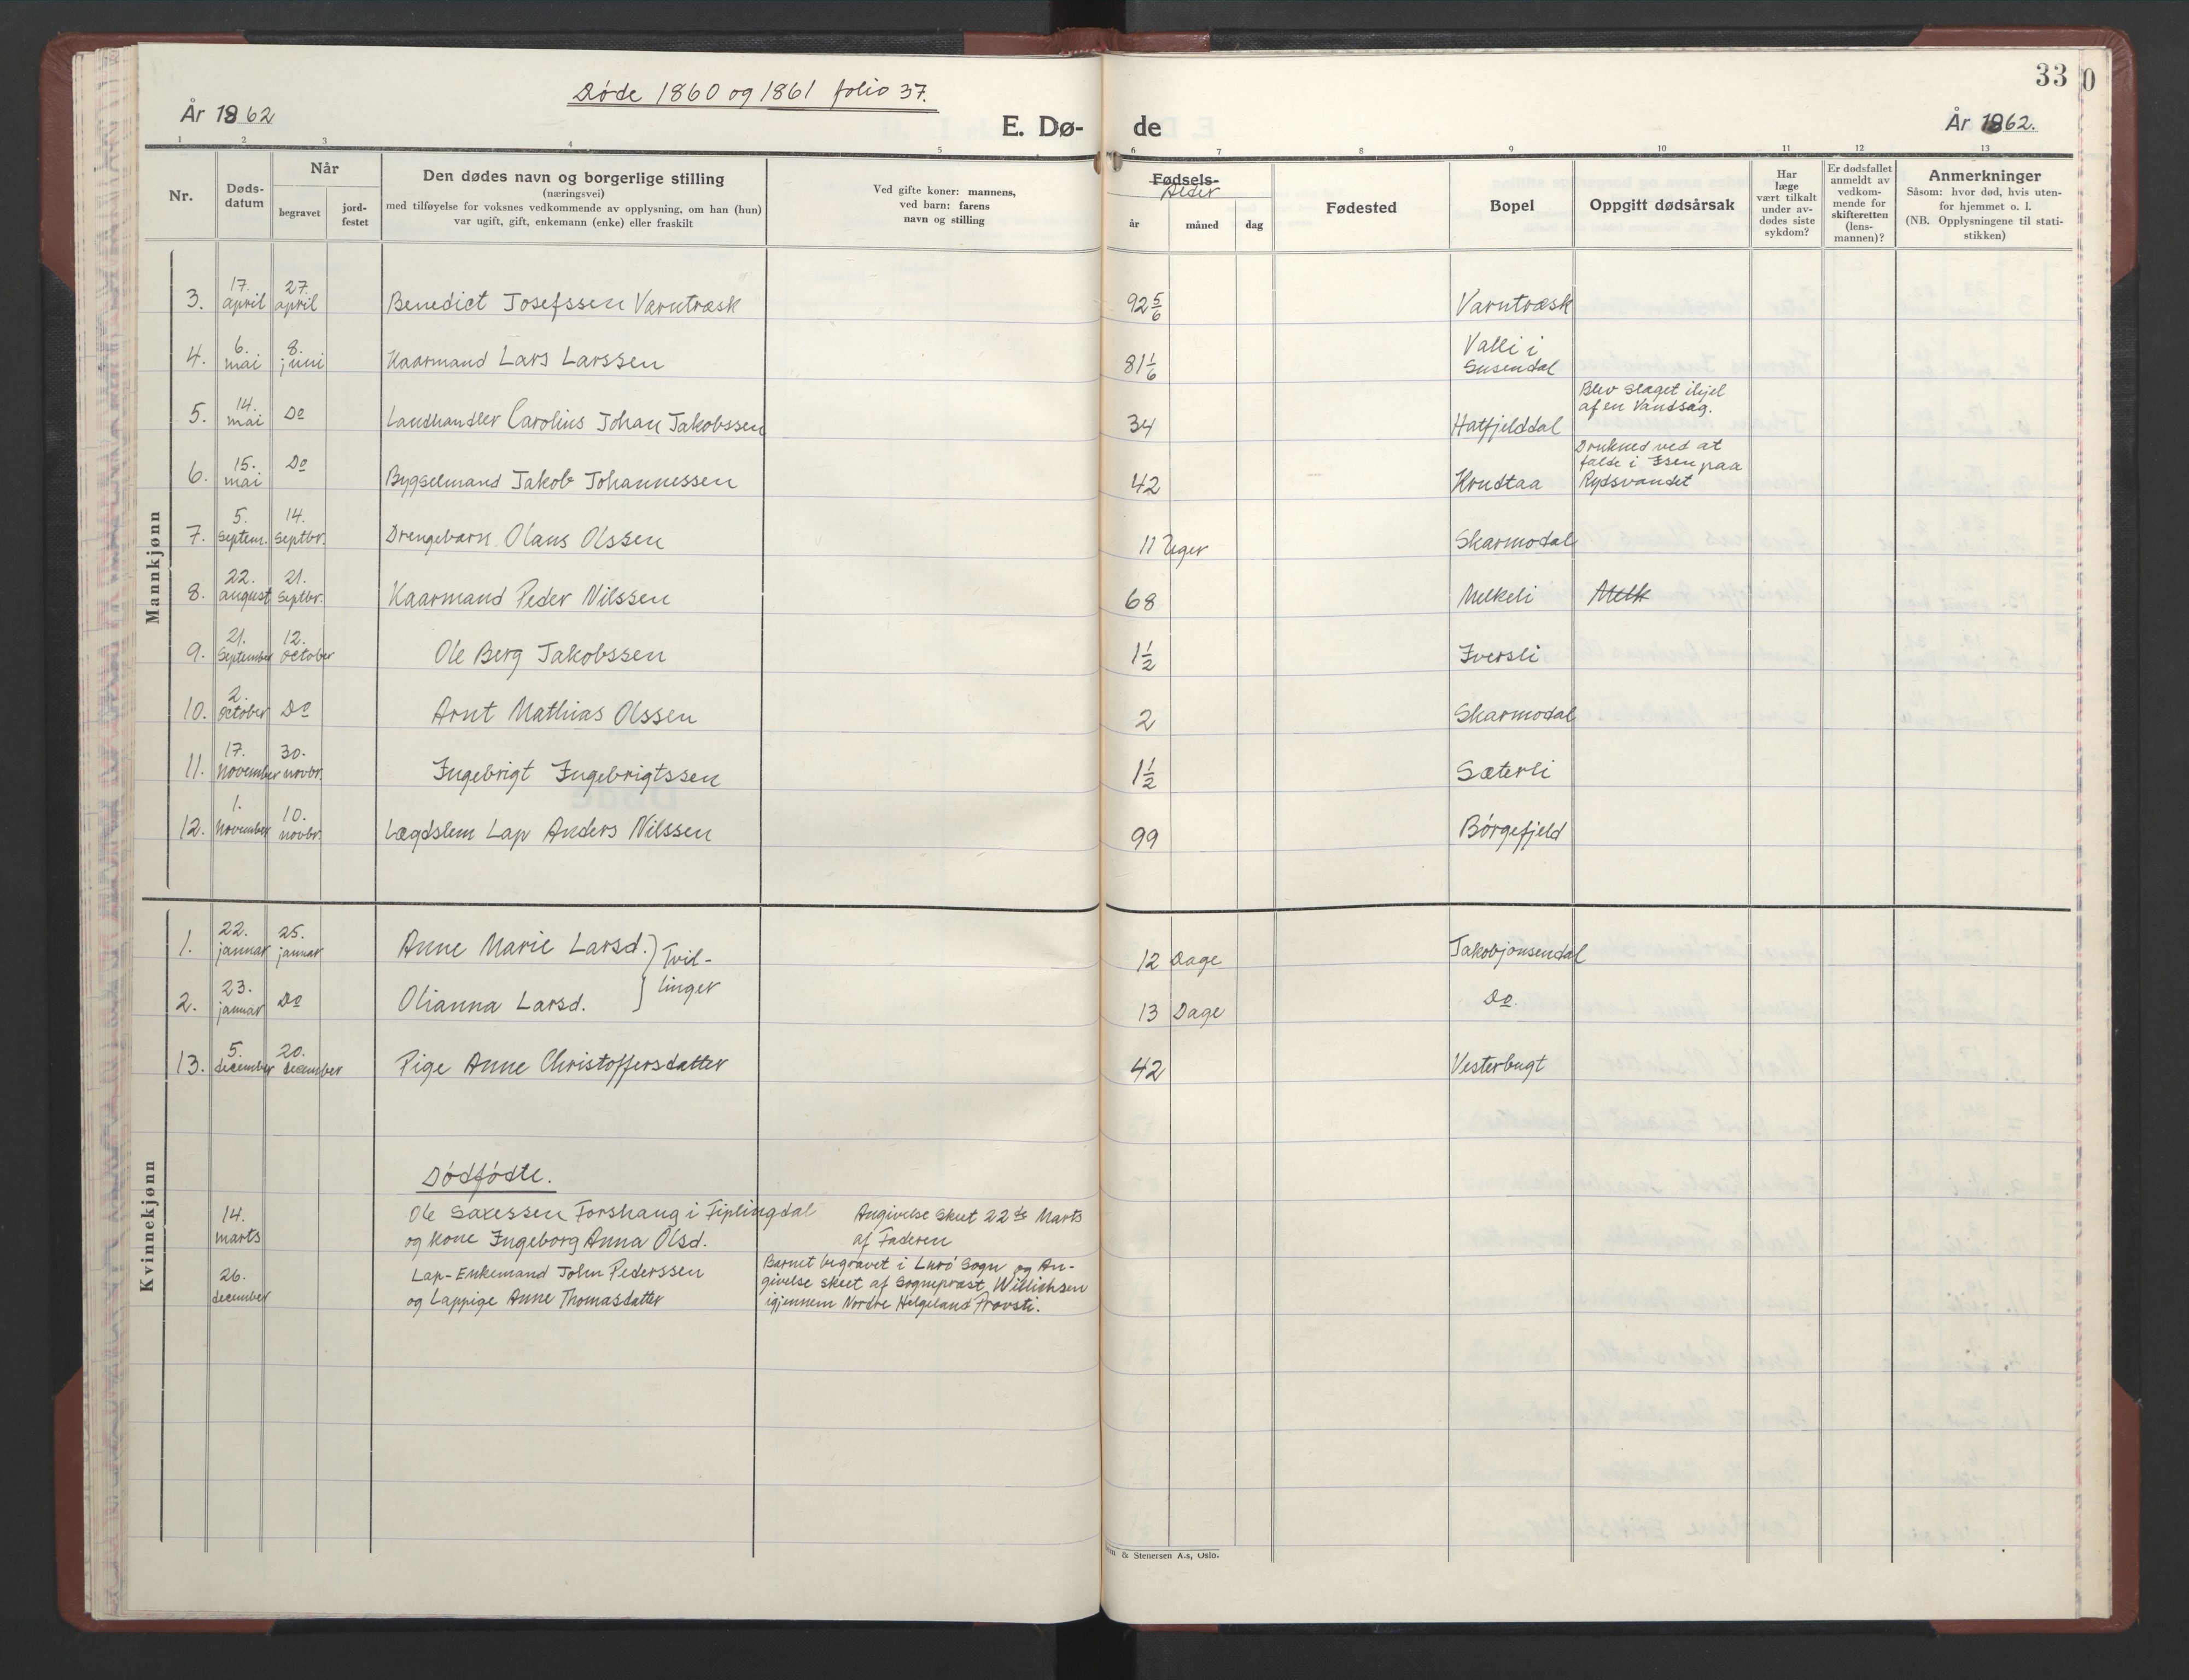 Døde 1860 og 1861 folio 37.
33
0
År 1862
E. Dø-
de
År 1862.
1 2 3 4 5 6 7 8 9 10 11 12 13
Nr.
Døds-
datum
Når
begravet
jord-
festet
Den dødes navn og borgerlige stilling
(næringsvei)
med tilføyelse for voksnes vedkommende av opplysning, om han (hun)
var ugift, gift, enkemann (enke) eller fraskilt
Ved gifte koner: mannens,
ved barn: farens
navn og stilling
Fødsels-
Alder
år måned dag
Fødested
Bopel
Oppgitt dødsårsak
Har
læge
vært tilkalt
under av-
dødes siste
sykdom?
Er dødsfallet
anmeldt av
vedkom-
mende for
skifteretten
(lens-
mannen)?
Anmerkninger
Såsom: hvor død, hvis uten-
for hjemmet o. l.
(NB. Opplysningene til stati-
stikken)
Mannkjønn
3. 17. april 27. april Benedict Josefssen Varntræsk 92 5/6 Varntræsk
4. 6. mai 8. juni Kaarmand Lars Larssen 81 1/6 Valli i
Susendal
5. 14. mai Do Landhandler Carolius Johan Jakobssen 34 Hatfjelddal Blev slaget ihjel
af en Vandsag.
6. 15. mai Do Bygselmand Jakob Johannessen 42 Krudtaa Drukned ved at
falde i Isen paa
Rydsvandet
7. 5. Septem. 14. Septbr. Drengebarn Olaus Olssen 11 Uger Skarmodal
8. 22. august 21. Septbr. Kaarmand Peder Nilssen 68 Melkeli Melk
9. 21. September 12. October Ole Berg Jakobssen 1 1/2 Iversli
10. 2. October Do Arnt Mathias Olssen 2 Skarmodal
11. 17. November 30. novbr. Ingebrigt Ingebrigtssen 1 1/2 Sæterli
12. 1. November 10. novbr. Lægdslem Lap Anders Nilssen 99 Börgefjeld
Kvinnekjønn
1. 22. januar 25. januar Anne Marie Larsd. } Tvil- 12 Dage Jakobjonsendal
2. 23. januar Do Olianna Larsd. } linger 13 Dage Do.
13. 5. december 20. december Pige Anne Christoffersdatter 42 Vesterbugt
Dödfödte.
14. marts Ole Saxessen Forshaug i Tiplingdal Angivelse skeet 22de Marts
og Kone Ingeborg Anna Olsd. af Faderen
26. december Lap-Enkemand John Pederssen Barnet begravet i Lurö Sogn og An-
og Lappige Anne Thomasdatter givelse skeet af Sognepræst Willichsen
igjennem Nordre Helgeland Provsti.
& Stenersen A.s, Oslo.